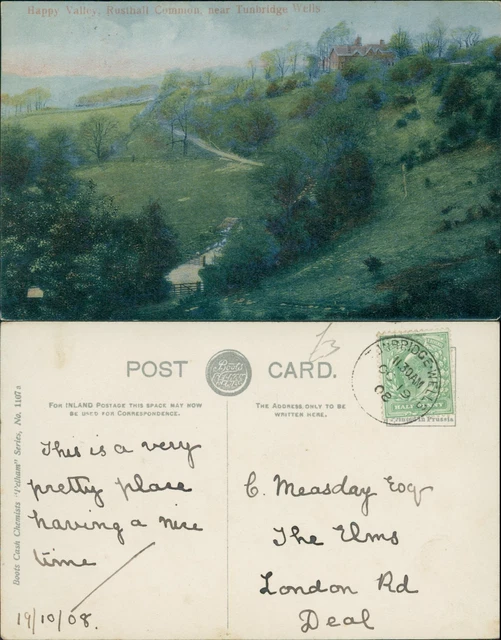 Happy Valley, Rusthall Common, near Tunbridge Wells
POST CARD.
FOR INLAND POSTAGE THIS SPACE MAY NOW
BE USED FOR CORRESPONDENCE.
THE ADDRESS ONLY TO BE
WRITTEN HERE.
TUNBRIDGE WELLS
11.30AM
OC 19
08
HALF
Printed in Prussia
Boots Cash Chemists "Pelham" Series, No. 1107
This is a very
pretty place
having a nice
time
19/10/08.
C. Measday Esq
The Elms
London Rd
Deal